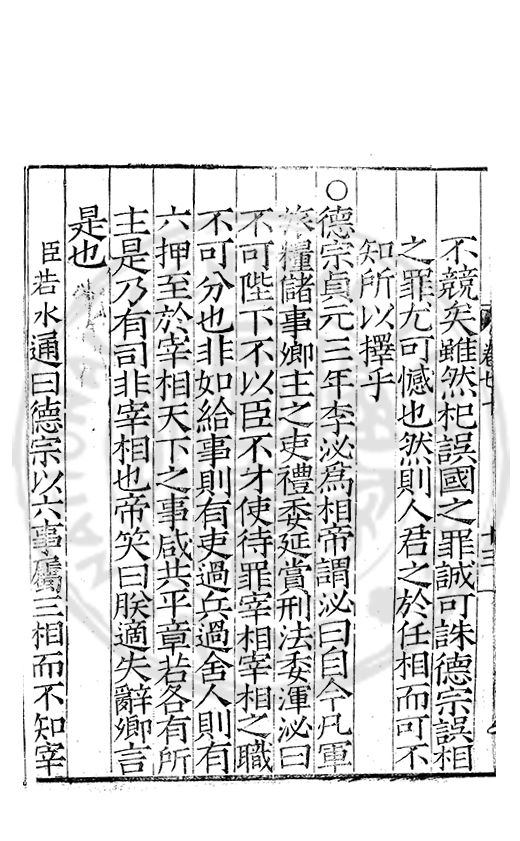 卷七十 十三
不競矣雖然杞誤國之罪誠可誅德宗誤相
之罪尤可憾也然則人君之於任相而可不
知所以擇乎
○德宗貞元三年李泌爲相帝謂泌曰自今凡軍
旅糧儲事卿主之吏禮委延賞刑法委渾泌曰
不可陛下不以臣不才使待罪宰相宰相之職
不可分也非如給事則有吏過兵過舍人則有
六押至於宰相天下之事咸共平章若各有所
主是乃有司非宰相也帝笑曰朕適失辭卿言
是也
臣若水通曰德宗以六事屬三相而不知宰